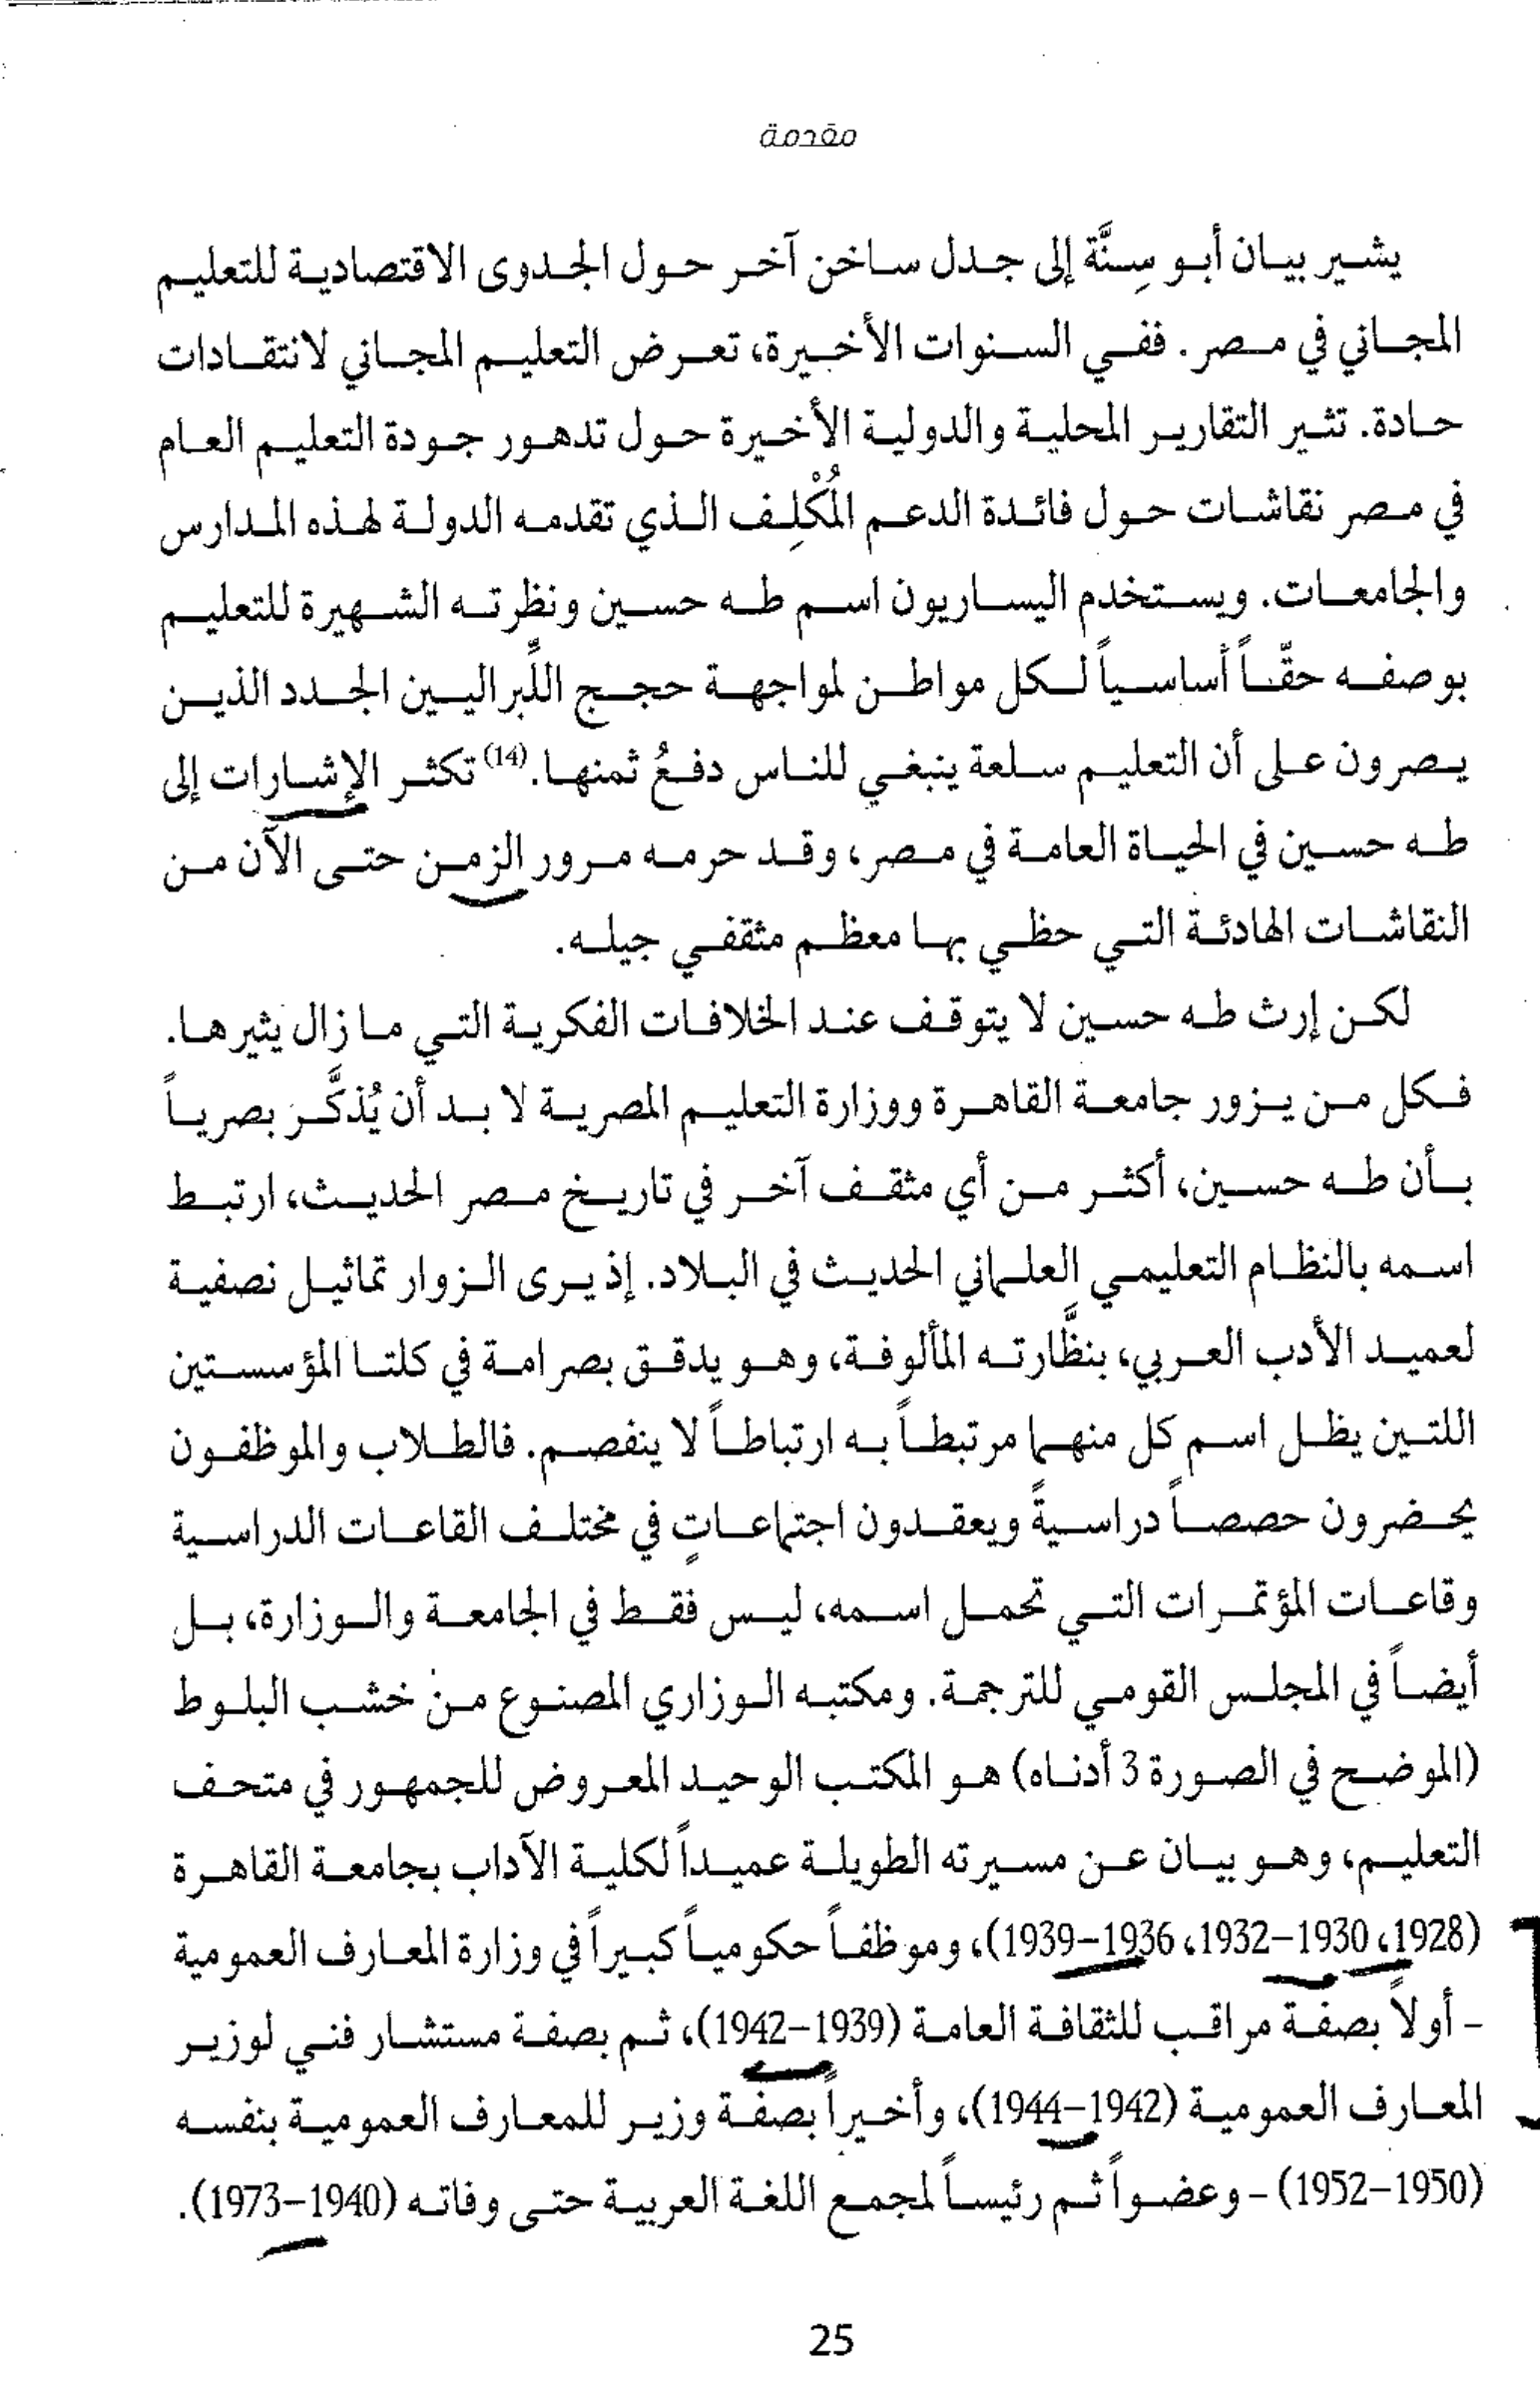 مقدمة
يشير بيان أبو سِنَّة إلى جدل ساخن آخر حول الجدوى الاقتصادية للتعليم
المجاني في مصر. ففي السنوات الأخيرة، تعرض التعليم المجاني لانتقادات
حادة. تثير التقارير المحلية والدولية الأخيرة حول تدهور جودة التعليم العام
في مصر نقاشات حول فائدة الدعم المُكْلِف الذي تقدمه الدولة لهذه المدارس
والجامعات. ويستخدم اليساريون اسم طه حسين ونظرته الشهيرة للتعليم
بوصفه حقّاً أساسياً لكل مواطن لمواجهة حجج اللِّبراليين الجدد الذين
يصرون على أن التعليم سلعة ينبغي للناس دفعُ ثمنها.(14) تكثر الإشارات إلى
طه حسين في الحياة العامة في مصر، وقد حرمه مرور الزمن حتى الآن من
النقاشات الهادئة التي حظي بها معظم مثقفي جيله.
لكن إرث طه حسين لا يتوقف عند الخلافات الفكرية التي ما زال يثيرها.
فكل من يزور جامعة القاهرة ووزارة التعليم المصرية لا بد أن يُذكَّر بصرياً
بأن طه حسين، أكثر من أي مثقف آخر في تاريخ مصر الحديث، ارتبط
اسمه بالنظام التعليمي العلماني الحديث في البلاد. إذ يرى الزوار تماثيل نصفية
لعميد الأدب العربي، بنظَّارته المألوفة، وهو يدقق بصرامة في كلتا المؤسستين
اللتين يظل اسم كل منهما مرتبطاً به ارتباطاً لا ينفصم. فالطلاب والموظفون
يحضرون حصصاً دراسيةً ويعقدون اجتماعاتٍ في مختلف القاعات الدراسية
وقاعات المؤتمرات التي تحمل اسمه، ليس فقط في الجامعة والوزارة، بل
أيضاً في المجلس القومي للترجمة. ومكتبه الوزاري المصنوع من خشب البلوط
(الموضح في الصورة 3 أدناه) هو المكتب الوحيد المعروض للجمهور في متحف
التعليم، وهو بيان عن مسيرته الطويلة عميداً لكلية الآداب بجامعة القاهرة
(1928، 1930–1932، 1936–1939)، وموظفاً حكومياً كبيراً في وزارة المعارف العمومية
– أولاً بصفة مراقب للثقافة العامة (1939–1942)، ثم بصفة مستشار فني لوزير
المعارف العمومية (1942–1944)، وأخيراً بصفة وزير للمعارف العمومية بنفسه
(1950–1952) – وعضواً ثم رئيساً لمجمع اللغة العربية حتى وفاته (1940–1973).
25